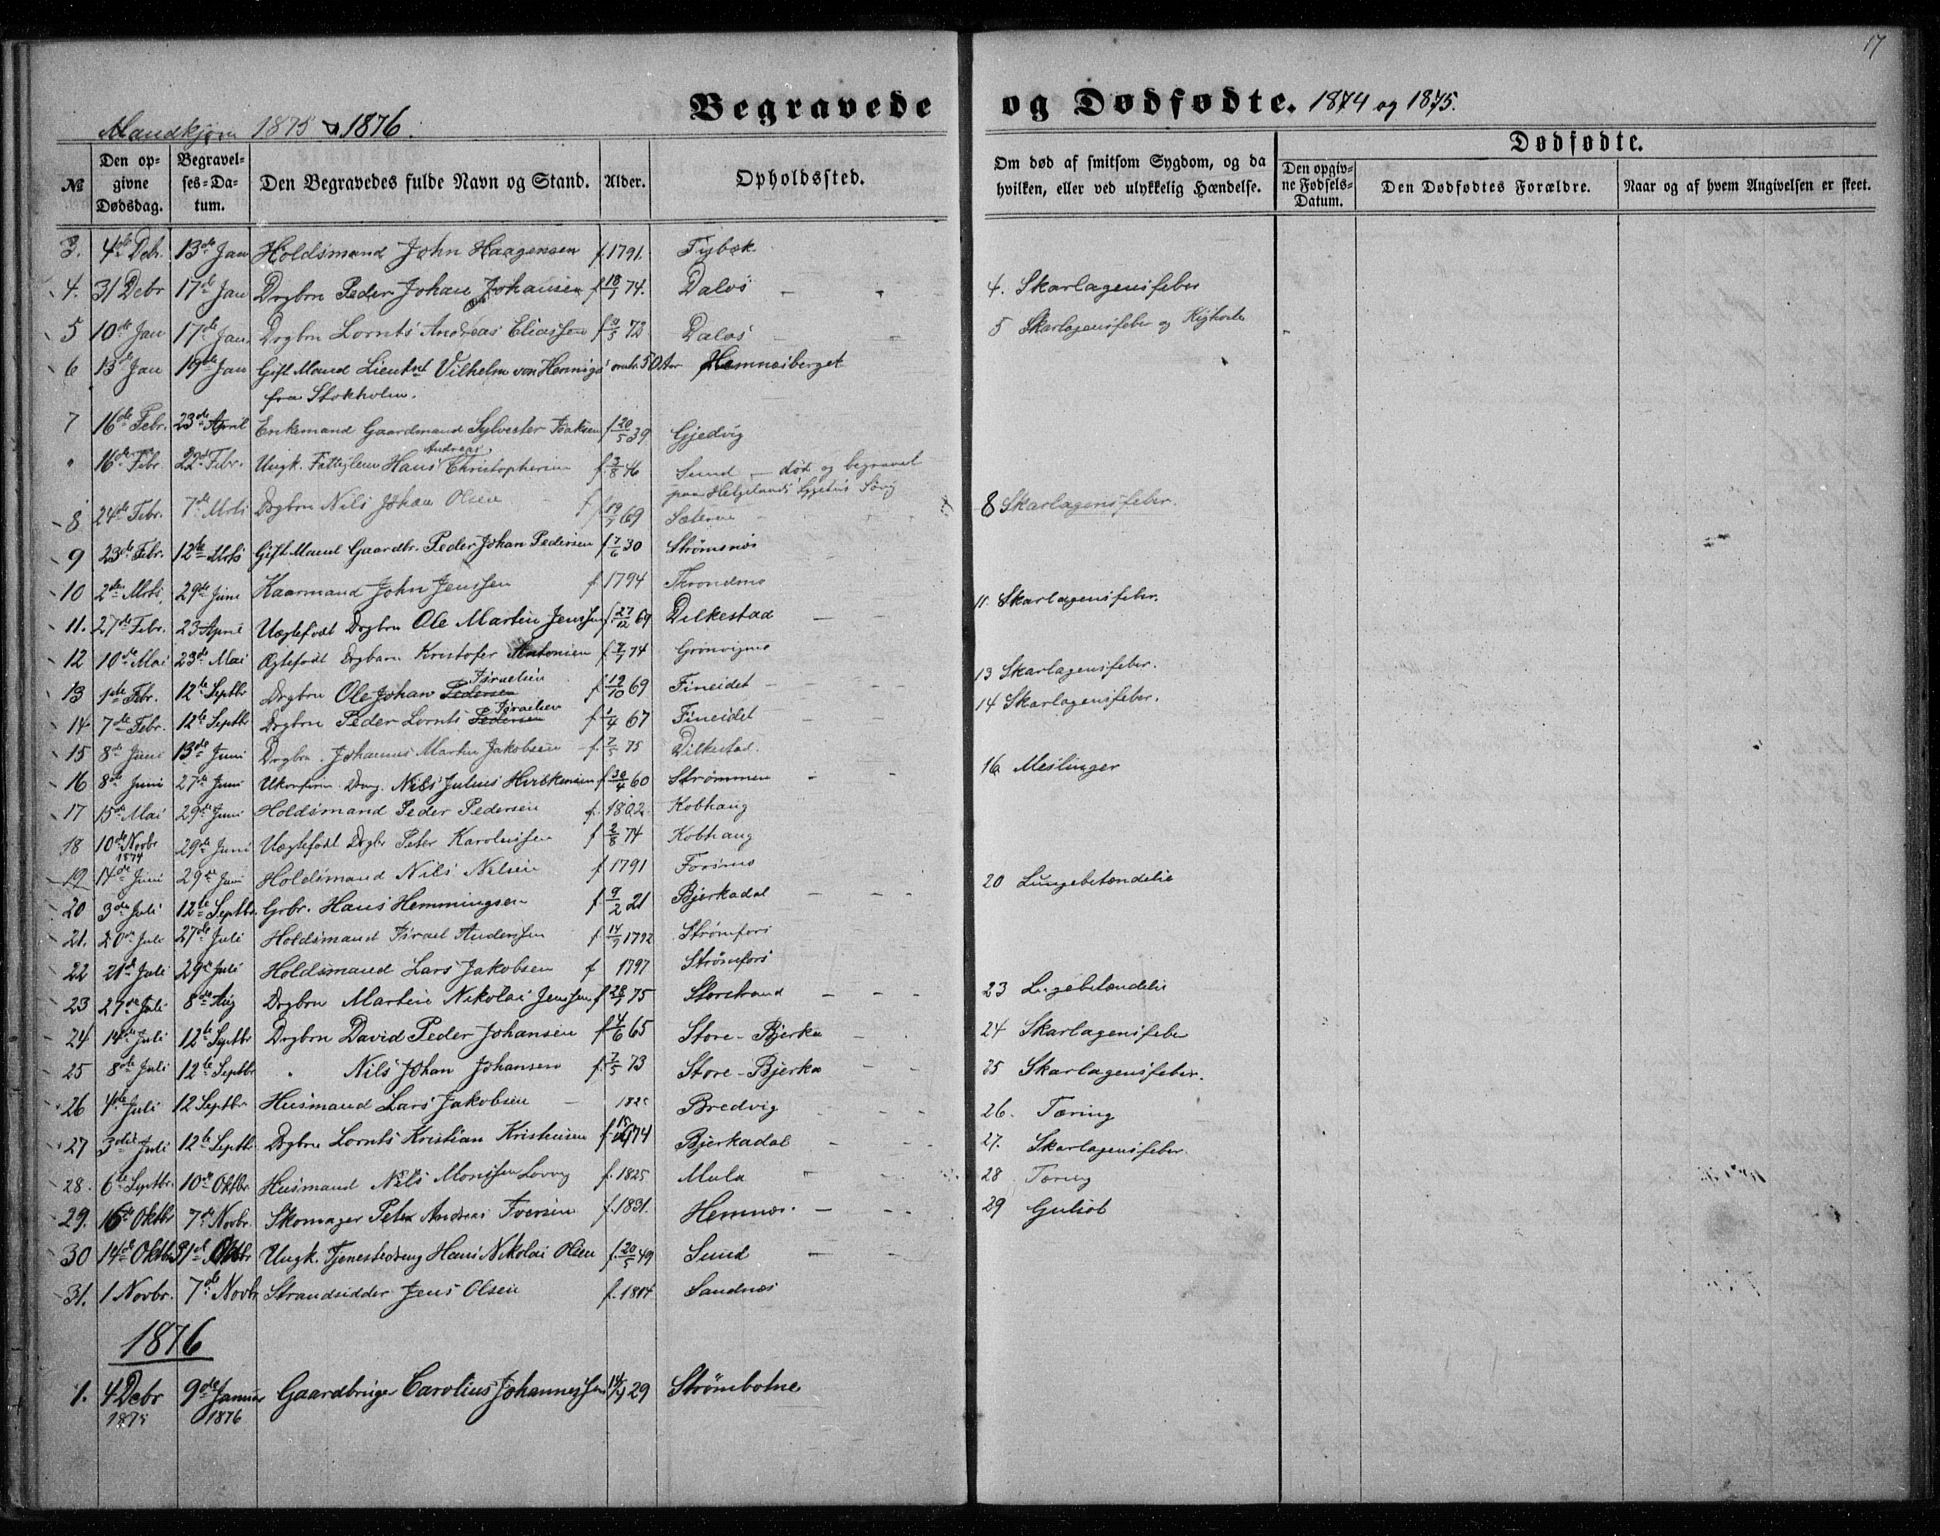 17
Begravede og Dødfødte. 1874 og 1875.
Mandkjøn 1875 & 1876.
Dødfødte.
№ Den opgivne Dødsdag. Begravelses-Datum. Den Begravedes fulde Navn og Stand. Alder. Opholdssted. Om død af smitsom Sygdom, og da hvilken, eller ved ulykkelig Hændelse. Den opgivne Fødsels-Datum. Den Dødfødtes Forældre. Naar og af hvem Angivelsen er skeet.
3. 4de Debr. 13de Jan Holdsmand John Haagensen f. 1791.
4. 31 Debr 17de Jan Drgbrn Peder Johan Johansen f 18/7 74. Dalos 4. Skarlagensfeber
5 10de Jan 17de Jan. Drgbrn Lornts Andreas Eliassen 72 Dalos 5 Skarlagensfeber og Kighoste
6 13de Jan 19de Jan Gift Mand Lieutnt Vilhelm von Hennigs omtr. 50 Aar Hemnesberget
fra Stokholm.
7 16de Febr. 23de April Enkemand Gaardmand Sylvester Isaksen f 20/5 39 Gjedvig
" 16de Febr. 22de Febr. Ungk. Fattiglem Hans Andreas Christophersen f. 3/8 46 Sund - død og begravet
paa Helgelands Sygehus
8 24de Febr. 7de Mrts Drgbrn Nils Johan Olsen f 69 8 Skarlagensfeber.
9 23de Febr. 12te Mrts Gift Mand Gaardbr. Peder Johan Pedersen f 7/6 30 Strømsnes
10 2den Mrts, 29de Juni Kaarmand John Jenssen f. 1794
11. 27de Febr. 23 April Uægtefødt Drgbrn Ole Martin Jenssen f. 27/12 69 Vilkestad 11. Skarlagensfeber.
12 10de Mai 23de Mai Ægtefødt Drgbarn Kristofer Antonsen 74
13 1ste Febr. 12te Septbr Drgbrn Ole Johan Pedersen Israelsen f 12/10 69 Fineidet 13 Skarlagensfeber.
14 7de Febr. 12te Septbr Drgbrn Peder Lornts Pedersen Israelsen f 1/4 67 Fineidet 14 Skarlagensfeber.
15 8de Juni 13de Juni Drgbrn. Johannes Martin Jakobsen f. 7/5 75 Vilkestad.
16 8de Juni 27de Juni Ukonfirm. Dreng. Nils Julius f 30/4 60 Strømmen 16. Meslinger
17 15de Mai 29de Juni Holdsmand Peder Pedersen f. 1802. Kobhaug
18 10de Novbr 1874 29de Juni Uægtefødt Drgbr Peter Karolussen f 2/8 74 Kobhaug
19 14de Juni 29de Juni Holdsmand Nils Nilsen f 1791 Forsmo
20 3die Juli 12te Septbr. Grbr. Hans Hemmingsen f 9/2 21 Bjerkadal 20 Lungebetændelse
21. 20de Juli 27de Juli Holdsmand Israel Anderssen f. 14/9 1792 Strømfors
22 21de Juli 29de Juli Holdsmand Lars Jakobsen f 1797 Strømfors
23 27de Juli 8de Aug Drgbrn Martin Nikolai Jenssen f 28/1 75 Storstrand 23
24 14de Juli 12te Septbr Drgbrn David Peder Johansen f 4/6 65 Store-Bjerka 24 Skarlagensfeber
25 8de Juli 12te Septbr " Nils Johan Johansen f. 7/5 73 Store-Bjerka 25 Skarlagensfeber.
26 4de Juli 12 Septbr Husmand Lars Jakobsen Bredvig 26. Tæring
27 3die Juli 12te Septbr Drgbrn Lornts Kristian Kristensen f. 74 Bjerkadal 27. Skarlagensfeber.
28. 6te Septbr. 10de Oktbr. Husmand Nils Monssen f. 1825 Mula 28 Tæring
29. 16de Oktbr 7de Novbr. Skomager Peter Andreas Iversen f. 1831. Hemnes. 29 Gulsot
30 14de Oktbr 31de Oktbr Ungk. Tjenestedreng Hans Nikolai Olsen f. 20/5 49 Sund
31. 1 Novbr. 7de Novbr Strandsidder Jens Olsen f. 1804 Sandnes
1876
1. 4 Debr 1875 9de Januar 1876 Gaardbruger Carolius Johannessen 29 Strømbotne